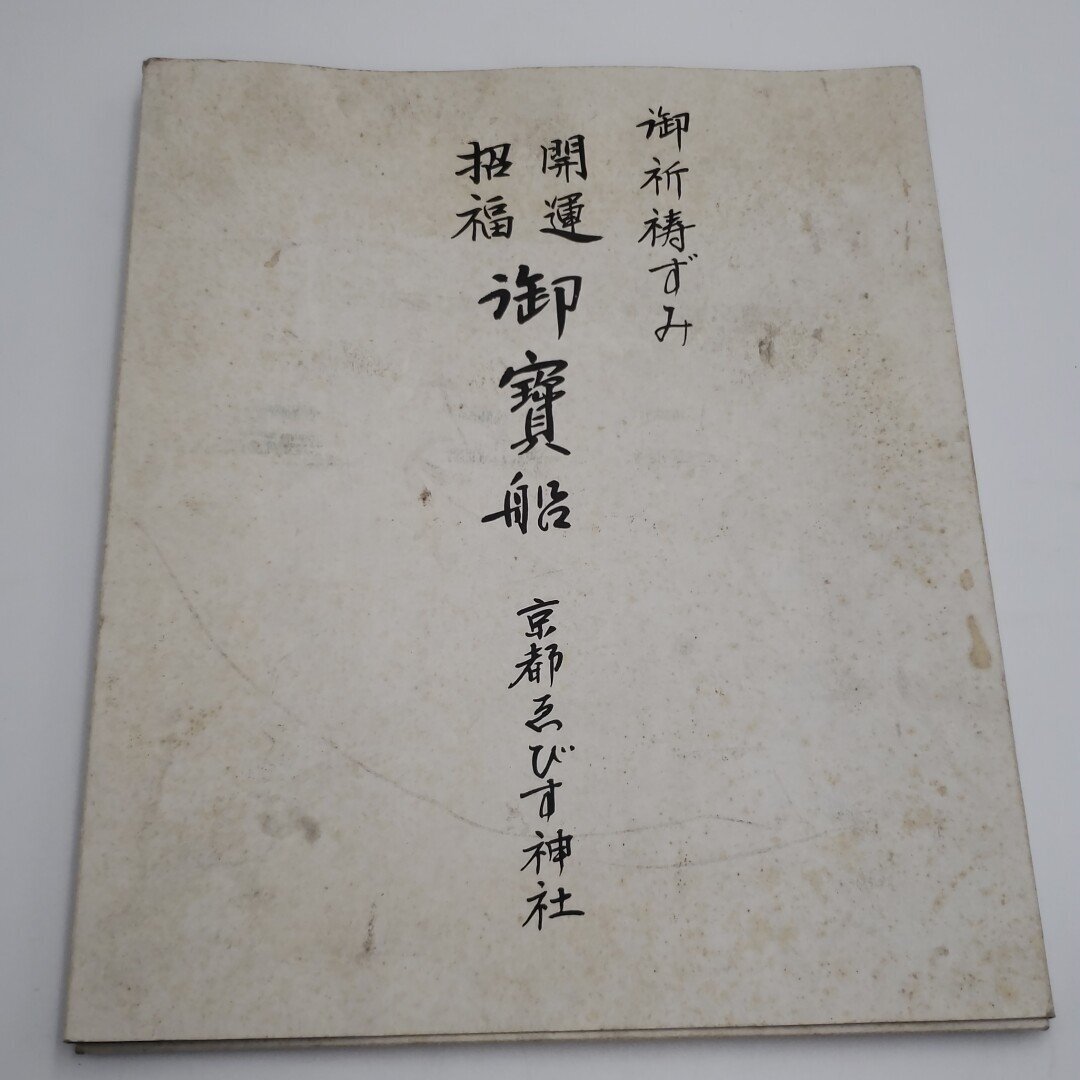 御祈祷ずみ
開運
招福
御寶船
京都ゑびす神社